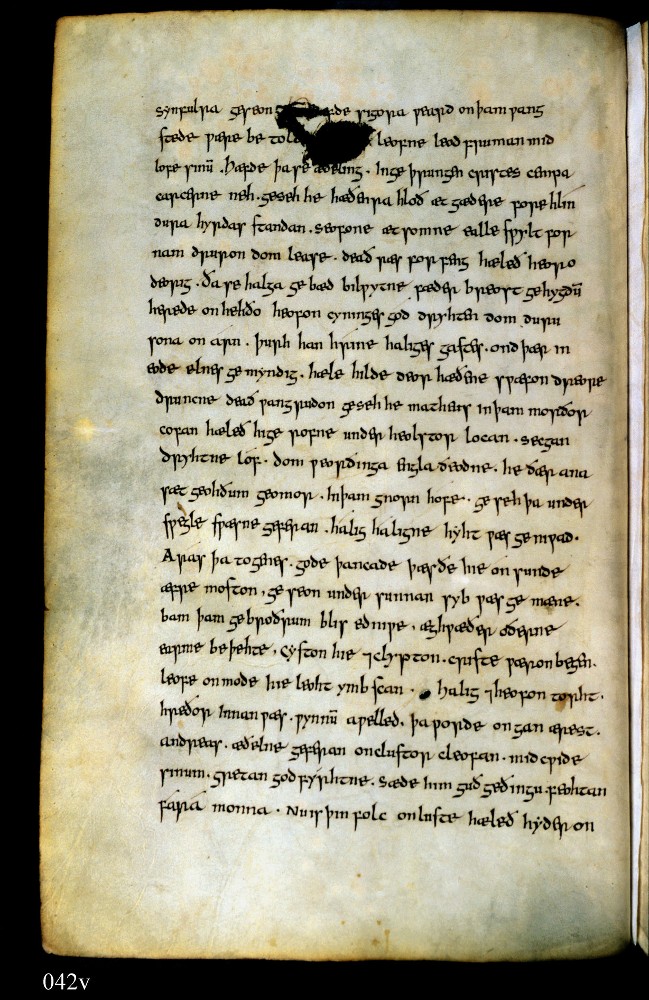 synfulra geseon sigora ƿeard on þam ƿang
stede ƿære be tol leofne leod fruman mid
lofe sinū . Hæfde þa se æðeling . Inge þrungen cristes cempa
carcerne neh . geseh he hæðenra hloð æt gædere fore hlin
dura hyrdas standan . seofone æt somne ealle sƿylt for
nam druron dom lease . deað ræs for feng hæleð heoro
deorig . Ða se halga ge bæd bilƿytne fæder breost gehygdū
herede on hehðo heofon cyninges god dryhten dom duru
sona on arn . þurh han hrine haliges gastes . ond þær in
eode elnes ge myndig . hæle hilde deor hæðene sƿæfon dreore
druncne deað ƿang rudon geseh he matheus in þam morðor
cofan hæleð hige rofne under heolstor locan . secgan
dryhtne lof . dom ƿeorðinga engla ðeodne . he ðær ana
sæt geohðum geomor . In þam gnorn hofe . ge seh þa under
sƿegle sƿæsne geferan . halig haligne hyht ƿæs ge niƿad .
Aras þa togenes . gode þancade þæs ðe hie on sunde
æfre moston . ge seon under sunnan syb ƿæs ge mæne .
bam þam ge broðrum blis edniƿe . æghƿæðer oðerne
earme be þehte . cyston hie ⁊ clypton . criste ƿæron begen .
leofe on mode hie leoht ymb scan . halig ⁊ heofon torht .
hreðor Innan ƿæs . ƿynnū aƿelled . þa ƿorde on gan ærest .
andreas . æðelne geferan on clustor cleofan . mid cƿide
sinum . gretan god fyrhtne . sæde him guð geðingu . feohtan
fara monna . Nu is þin folc on luste hæleð hyder on
042v